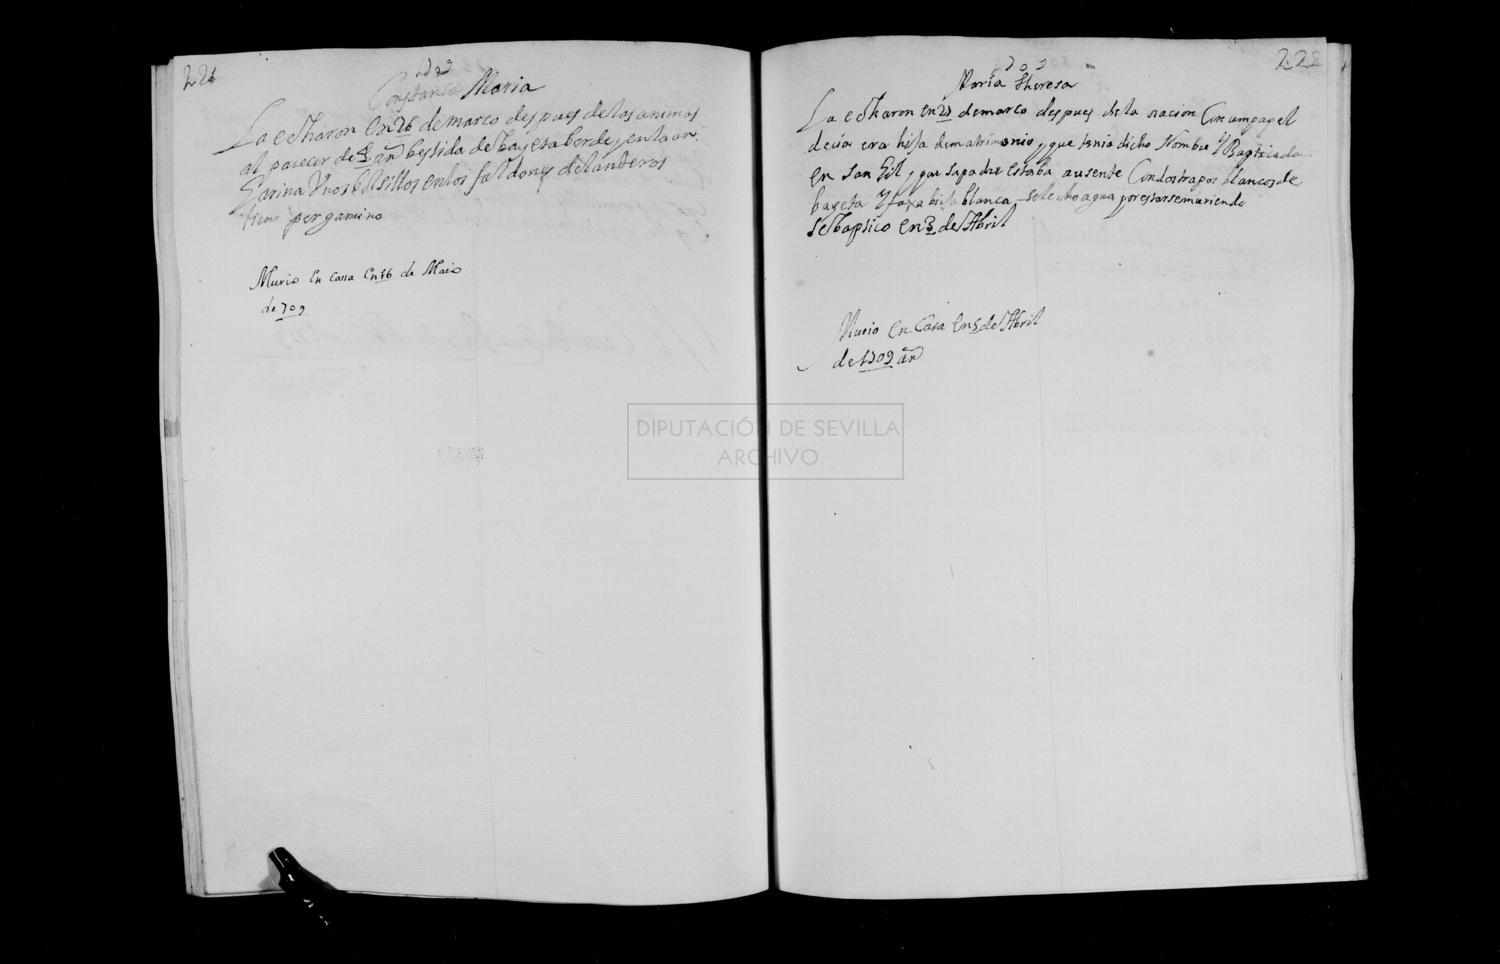 221
1709
Constanza Maria
La echaron en 26 de marco despues de las animas
al parecer de 4 añ bestida de bayesa berde, en la an
Garina Unos bolsillos en los faldones delanderos
tiene pergamino
Murio en casa en 16 de Maio
de 709
222
1709
Maria Theresa
La echaron en 27 de marco despues de la oracion Con un papel
decia era hija de matrimonio, y que tenia dicho Nombre Y Baptizada
en San Gil, y que su padre estaba ausente Con dos trapos blancos de
bayeta Y faxa blanca se le echo agua por estarse muriendo
Se baptico en 3 de Abril
Murio en Casa en 5 de Abril
de 1709 añ
DIPUTACIÓN DE SEVILLA
ARCHIVO